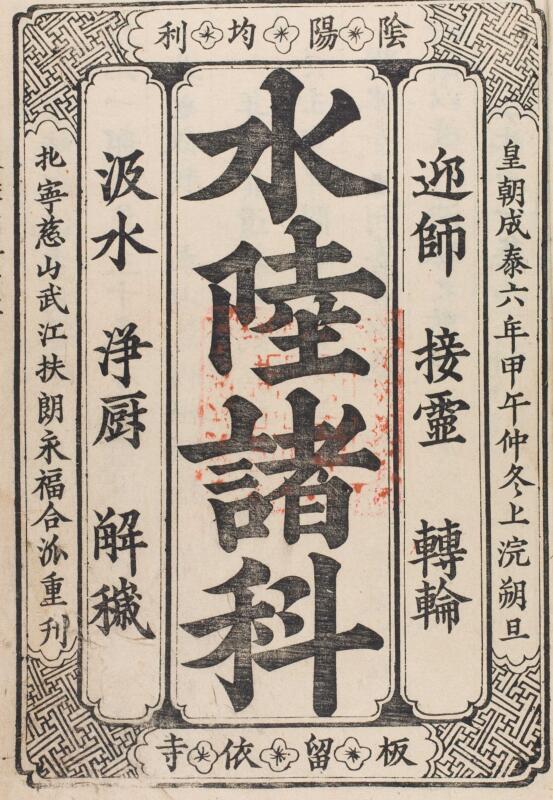 陰陽均利
皇朝成泰六年甲午仲冬上浣朔旦
迎師 接靈 轉輪
水陸諸科
汲水 浄厨 解穢
北寧慈山武江扶朗永福合派重刊
板留依寺